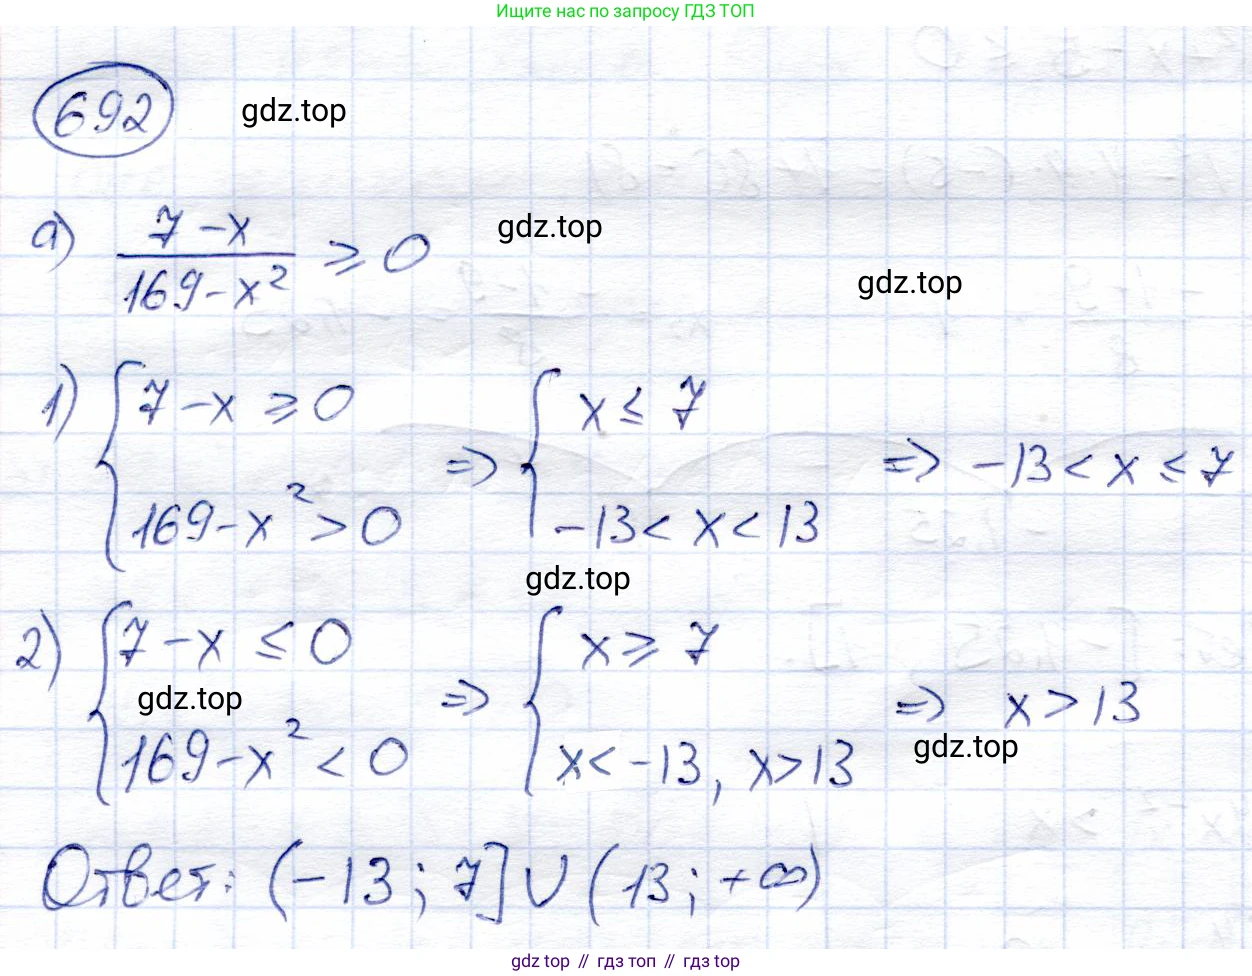 Ищите нас по запросу ГДЗ ТОП
692
gdz.top
а) (7 - x)/(169 - x²) ⩾ 0
gdz.top
gdz.top
1) { 7 - x ⩾ 0 ; 169 - x² > 0 ⇒ { x ≤ 7 ; -13 < x < 13 ⇒ -13 < x ≤ 7
gdz.top
2) { 7 - x ≤ 0 ; 169 - x² < 0 ⇒ { x ⩾ 7 ; x < -13, x > 13 ⇒ x > 13
gdz.top
gdz.top
Ответ: (-13; 7] ∪ (13; +∞)
gdz top // гдз топ // гдз top